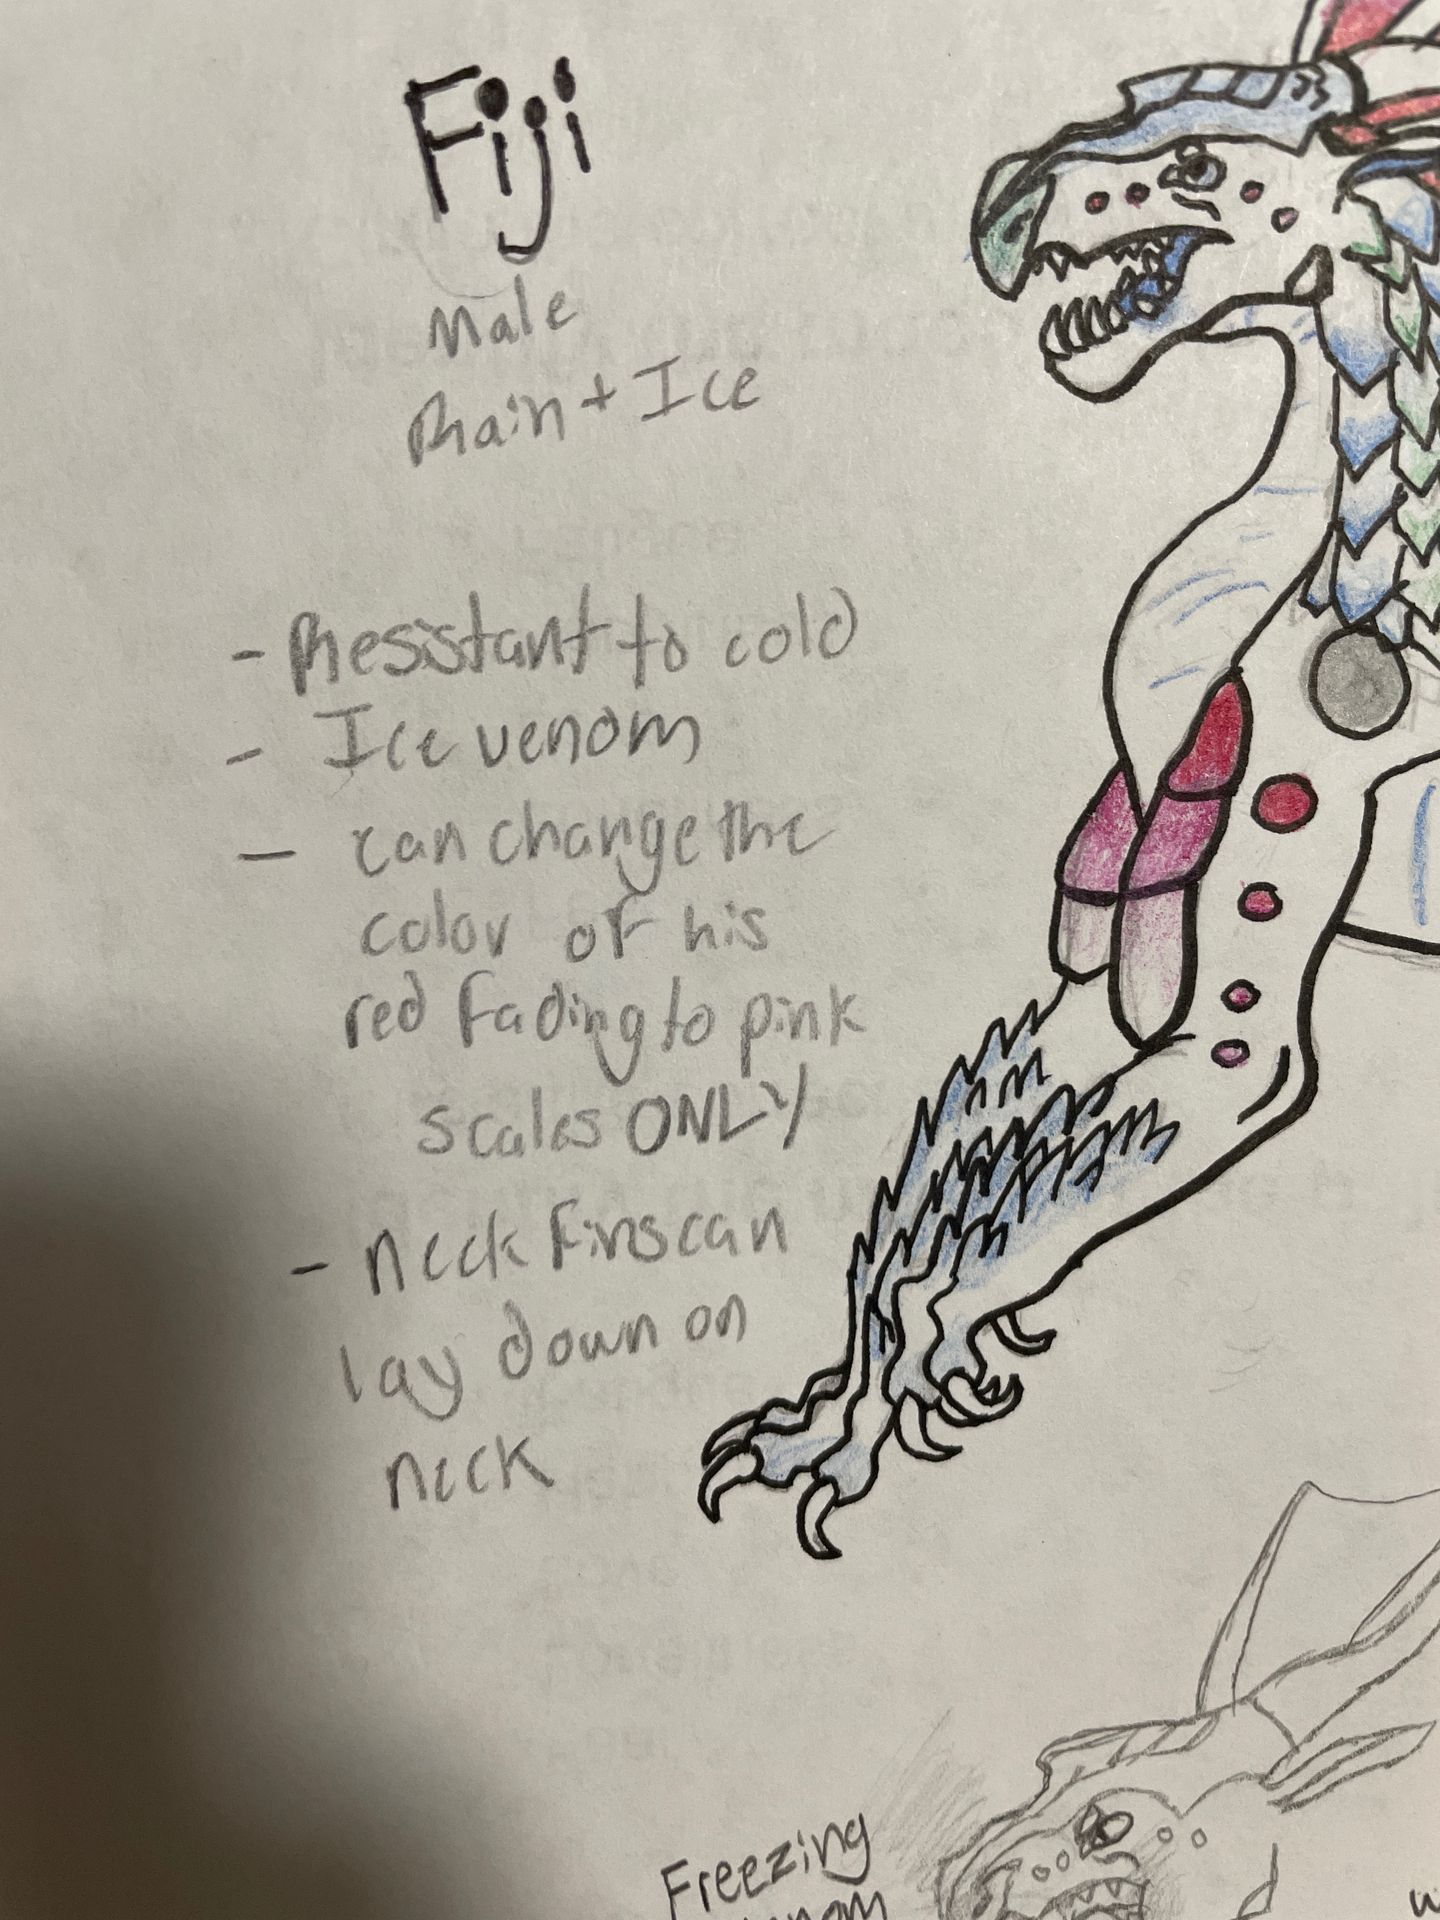 Fiji
Male
Rain + Ice
- Resistant to cold
- Ice venom
- can change the
color of his
red fading to pink
scales ONLY
- neck fins can
lay down on
neck
Freezing